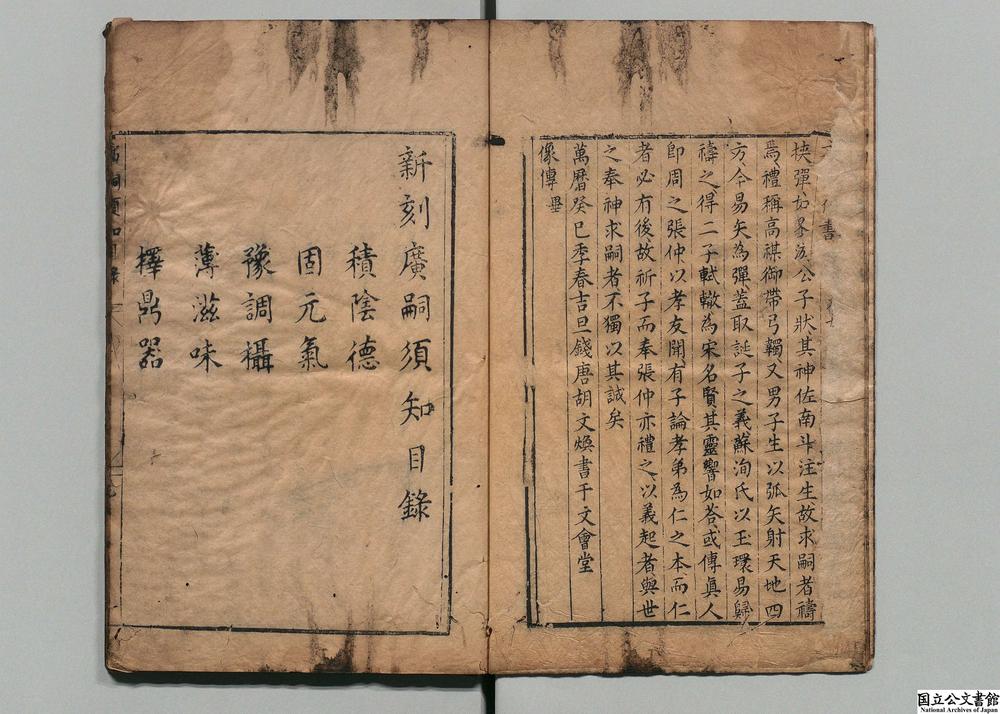 挾彈如貴游公子狀其神佐南斗注生故求嗣者禱
焉禮稱高禖御帶弓韣又男子生以弧矢射天地四
方今易矢為彈蓋取誕子之義蘇洵氏以玉環易歸
禱之得二子軾轍為宋名賢其靈響如荅或傳真人
即周之張仲以孝友開有子論孝弟為仁之本而仁
者必有後故祈子而奉張仲亦禮之以義起者與世
之奉神求嗣者不獨以其誠矣
萬曆癸巳季春吉旦錢唐胡文煥書于文會堂
像傳畢
新刻廣嗣須知目錄
積陰德
固元氣
豫調攝
薄滋味
擇鼎器
国立公文書館
National Archives of Japan